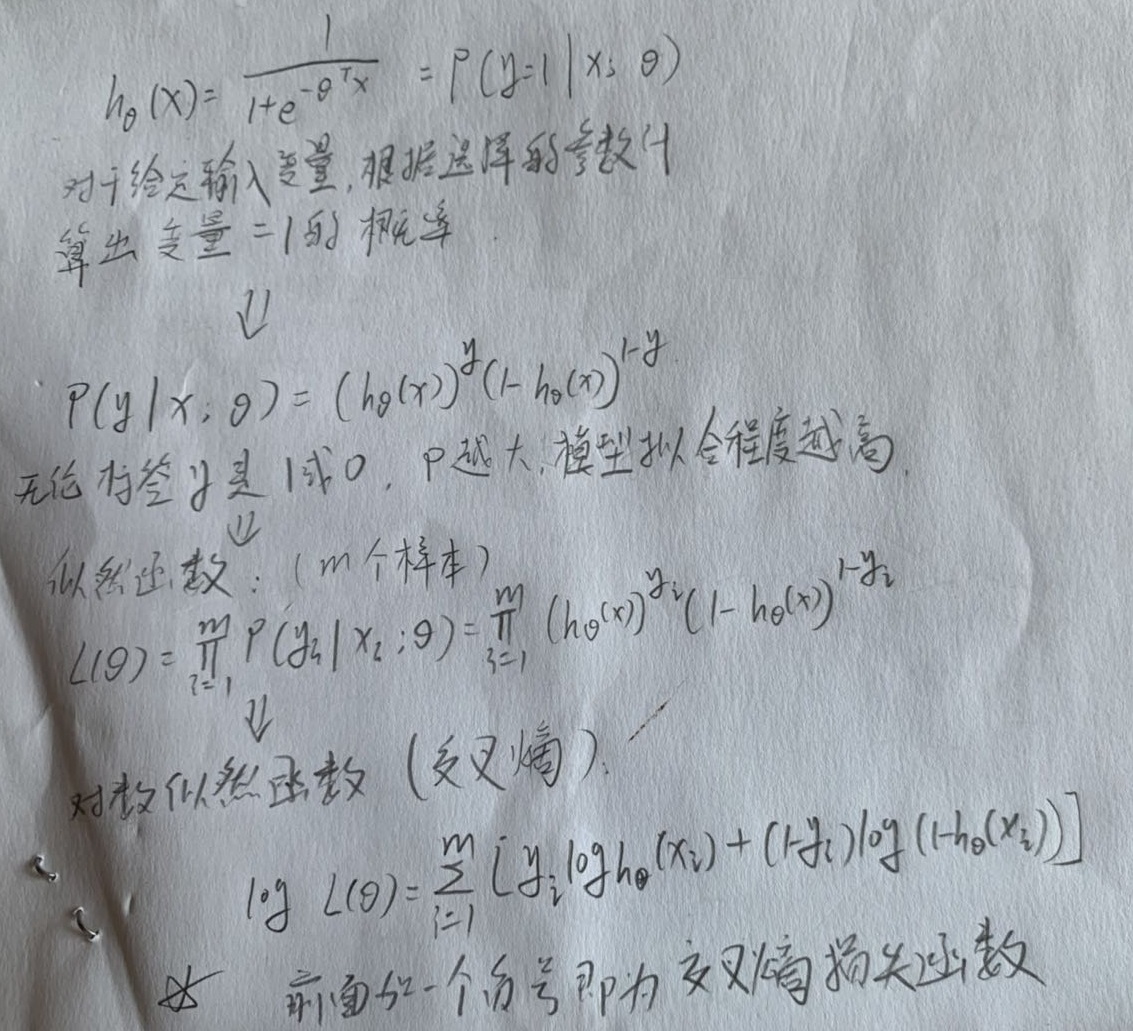 h_θ(x) = 1/(1+e^{-θ^T x}) = P(y=1|x; θ)
对于给定输入变量,根据选择的参数计
算出变量=1的概率.
⇓
P(y|x; θ) = (h_θ(x))^y (1-h_θ(x))^{1-y}
无论标签y是1或0, P越大,模型拟合程度越高.
⇓
似然函数: (m个样本)
L(θ) = ∏_{i=1}^m P(y_i|x_i; θ) = ∏_{i=1}^m (h_θ(x))^{y_i} (1-h_θ(x))^{1-y_i}
⇓
对数似然函数 (交叉熵).
log L(θ) = ∑_{i=1}^m [y_i log h_θ(x_i) + (1-y_i) log (1-h_θ(x_i))]
☆ 前面加一个负号即为交叉熵损失函数